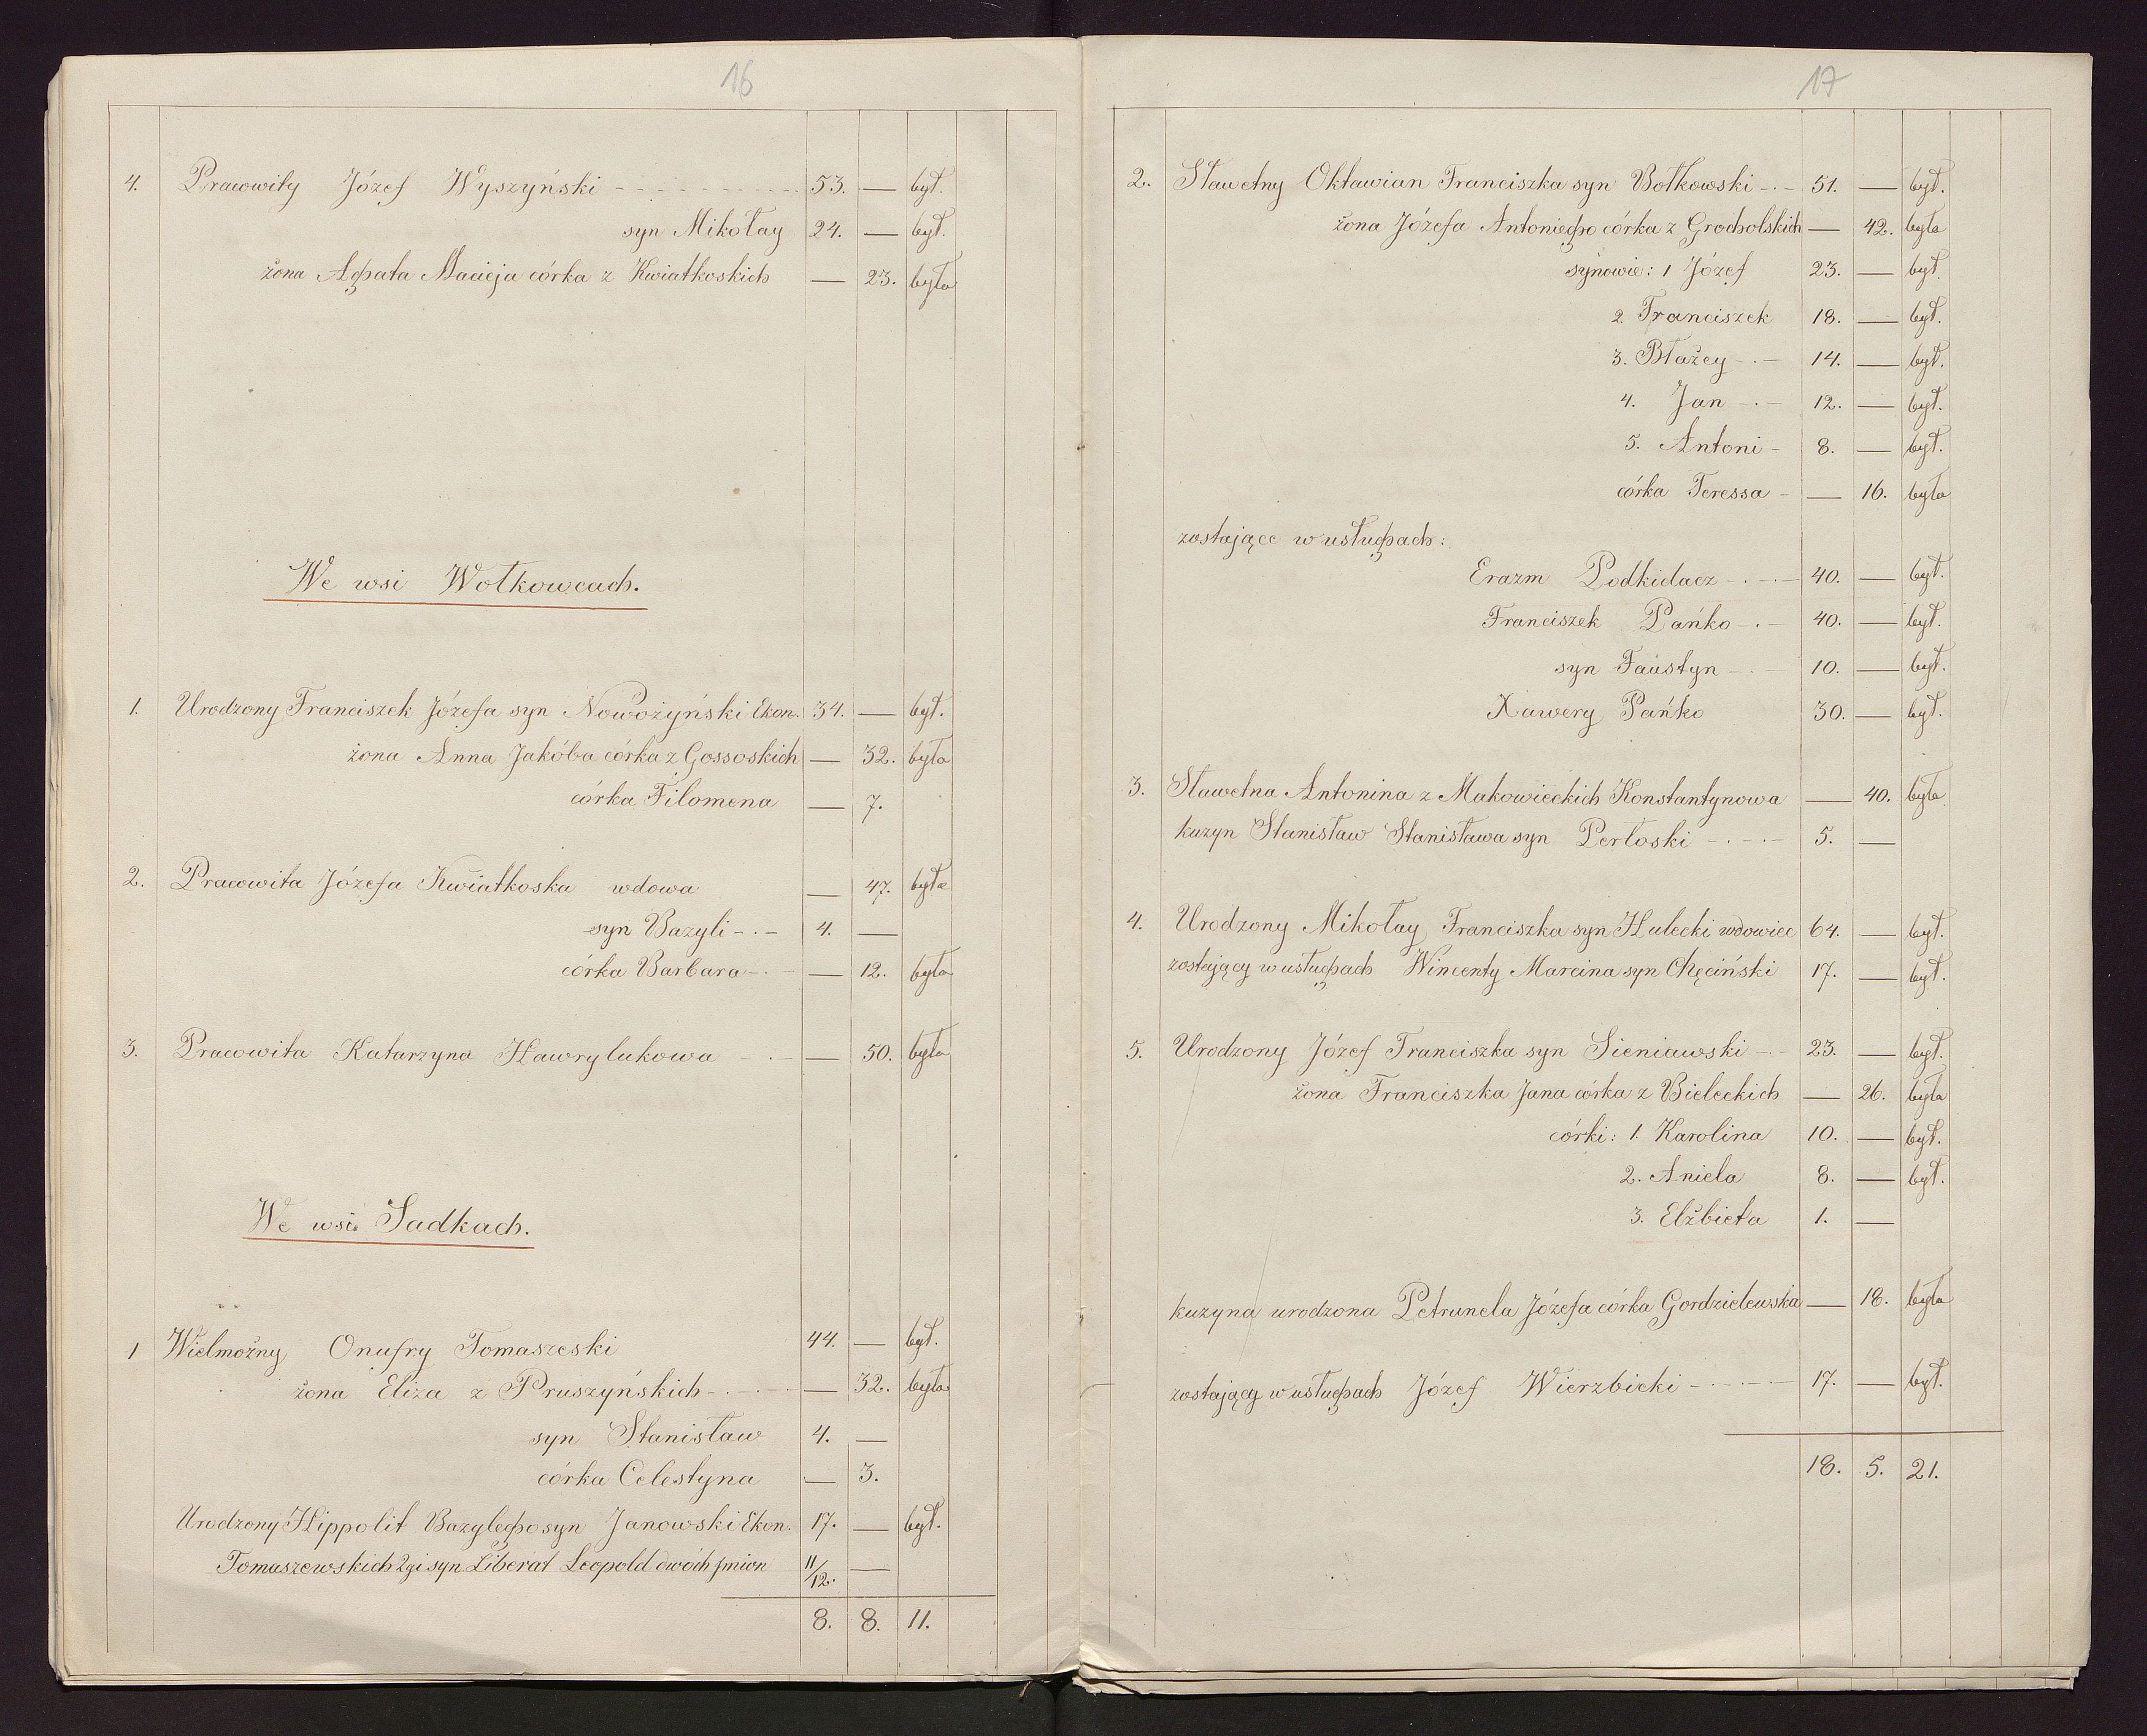 16
4. Pracowity Józef Wyszyński 53. — był.
syn Mikołay 24. — był.
żona Agata Macieja córka z Kwiatkoskich — 23. była
We wsi Wołkowcach.
1. Urodzony Franciszek Józefa syn Nowożyński Ekon. 34. — był.
żona Anna Jakóba córka z Gossoskich — 32. była
córka Filomena — 7.
2. Pracowita Józefa Kwiatkoska wdowa — 47. była
syn Bazyli 4. —
córka Barbara — 12. była
3. Pracowita Katarzyna Hawrylukowa — 50. była
We wsi Sadkach.
1 Wielmożny Onufry Tomaszeski 44. — był.
żona Eliza z Pruszyńskich — 32. była
syn Stanisław 4. —
córka Celestyna — 3.
Urodzony Hippolit Bazylego syn Janowski Ekon. 17. — był.
Tomaszewskich 2gi syn Liberat Leopold dwóch jmion 11/12. —
8. 8. 11.
17
2. Sławetny Oktawian Franciszka syn Bołkowski 51. — był.
żona Józefa Antoniego córka z Grocholskich — 42. była
synowie: 1 Józef 23. — był.
2 Franciszek 18. — był.
3. Błażey 14. — był.
4. Jan 12. — był.
5. Antoni 8. — był.
córka Teressa — 16. była
zostające w usługach:
Erazm Podkidacz 40. — był.
Franciszek Pańko 40. — był.
syn Faustyn 10. — był.
Xawery Pańko 30. — był.
3. Sławetna Antonina z Makowieckich Konstantynowa — 40. była
kuzyn Stanisław Stanisława syn Perłoski 5. —
4. Urodzony Mikołay Franciszka syn Hulecki wdowiec 64. — był.
zostający w usługach Wincenty Marcina syn Chęciński 17. — był.
5. Urodzony Józef Franciszka syn Sieniawski 23. — był.
żona Franciszka Jana córka z Bieleckich — 26. była
córki: 1. Karolina 10. — był.
2. Aniela 8. — był.
3. Elżbieta 1. —
kuzyna urodzona Petrunela Józefa córka Gordzielewska — 18. była
zostający w usługach Józef Wierzbicki 17. — był.
18. 5. 21.